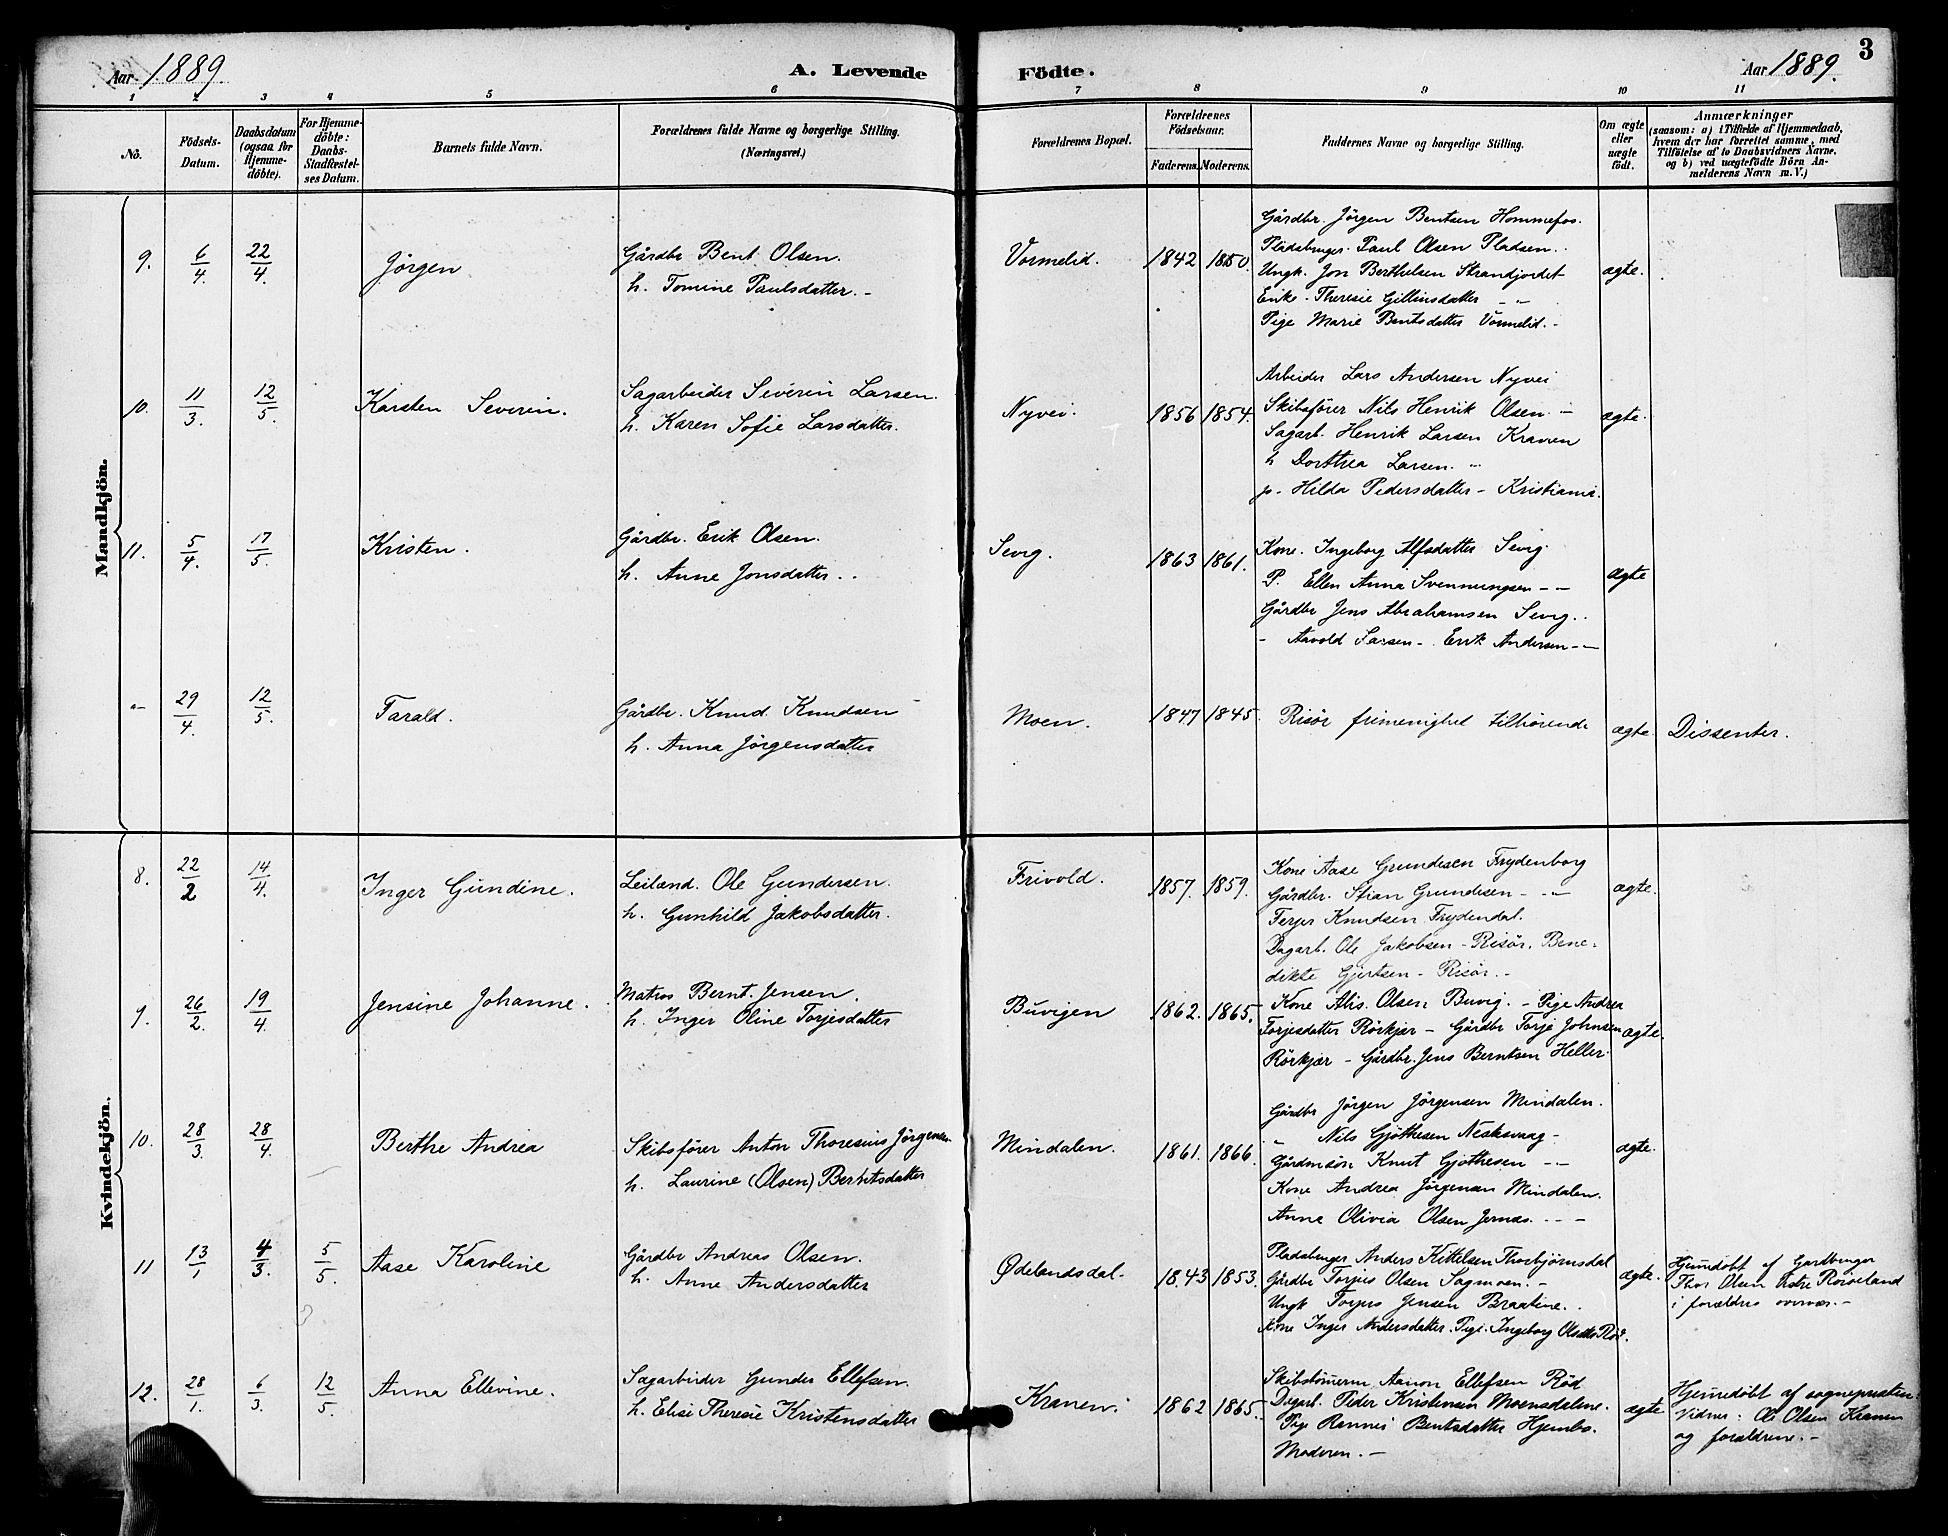 Aar 1889
A. Levende
Födte.
Aar 1889.
3
1 2 3 4 5 6 7 8 9 10 11
No.
Födsels-Datum.
Daabsdatum (ogsaa for Hjemme-döbte).
For Hjemme-döbte: Daabs-Stadfæstel-ses Datum.
Barnets fulde Navn.
Forældrenes fulde Navne og borgerlige Stilling.
(Næringsvei.)
Forældrenes Bopæl.
Forældrenes Födselsaar.
Faderens. Moderens.
Faddernes Navne og borgerlige Stilling.
Om ægte eller uægte födt.
Anmærkninger
(saasom: a) i Tilfælde af Hjemmedaab,
hvem der har forrettet samme, med
Tilföielse af to Daabsvidners Navne,
og b) ved uægtefödte Börn An-
melderens Navn m. V.)
Mandkjön.
9. 6/4. 22/4. Jörgen
Gårdbr. Bent Olsen.
h. Tomine Paulsdatter. -
Vormelid. 1842 1850.
Gårdbr. Jörgen Bentsen Hommefos.
Pladsbruger. Paul Olsen Pladsen.
Ungk. Jon Berthelsen Strandjordet
Enke. Theresie Gillinsdatter - "-
Pige Marie Bentsdatter Vormelid. -
ægte.
10. 11/3. 12/5. Karsten Severin.
Sagarbeider Severin Larsen.
h. Karen Sofie Larsdatter.
Nyvei. 1856 1854.
Arbeider Lars Andersen Nyvei
Skibsförer Nils Henrik Olsen. -
Sagarb. Henrik Larsen Kranen
h Dorthea Larsen. "-
p. Hilda Pedersdatter - Kristiania.
ægte.
11. 5/4. 17/5. Kristen.
Gårdbr. Erik Olsen.
h. Anne Jonsdatter. .
Sevig. 1863 1861.
Kone. Ingeborg Alfsdatter Sevig.
P. Ellen Anna Svennungsen - -
Gårdbr Jens Abrahamsen Sevig. .
- Aavold Larsen - Erik Andersen - -
ægte
"- 29/4. 12/5. Tarald.
Gårdbr. Knud Knudsen
h. Anna Jörgensdatter
Moen. 1847 1845.
Risör frimenighed tilhörende
ægte. Dissenter.
Kvindekjön.
8. 22/2 14/4. Inger Gundine.
Leiland. Ole Gundersen.
h. Gunhild Jakobsdatter.
Frivold. 1857. 1859.
Kone Aase Grundesen Frydenborg
Gårdbr. Stian Grundesen - "-
Terjes Knudsen Frydendal.
Dagarb. Ole Jakobsen - Risör. Bene-
dikte Gjertsen - Risör. -
ægte.
9. 26/2. 19/4. Jensine Johanne.
Matros Bernt Jensen.
h. Inger Oline Torjesdatter
Buvigen 1862. 1865.
Kone Alis. Olsen Buvig. - Pige Andrea
Torjesdatter Rörkjær - Gårdbr Torje Johnsen
Rörkjær - Gårdbr. Jens Berntsen Heller.
ægte.
10. 28/3. 28/4. Berthe Andrea
Skibsförer Anton Thoresius Jörgensen
h. Laurine (Olsen) Berntsdatter
Mindalen. 1861. 1866.
Gårdbr Jörgen Jörgensen Mindalen.
" Nils Gjöthesen Nesksvaag -
Gårdmsön Knut Gjöthesen - -
Kone Andrea Jörgensen Mindalen.
Anne Olivia Olsen Jernæs. - -
ægte.
11 13/1 4/3. 5/5. Aase Karoline
Gårdbr Andreas Olsen.
h. Anne Andersdatter
Ødelandsdal. 1843 1853.
Pladsbruger Anders Kittelsen Thorbjörnsdal
Gårdbr Torjus Olsen Sagmoen. -
Ungk Torjus Jensen Braatene.
Kone Inger Andersdatter. Pige. Ingeborg Olsdtr Röd.
ægte.
Hjemmedöbt af Gardbruger
Thor Olsen Østre Röiseland
i forældres overvær. -
12. 28/1. 6/3. 12/5. Anna Ellevine.
Sagarbeider Gunder Ellefsen.
h. Elise Theresie Kristensdatter
Kranen. 1862 1865.
Skibstömrm Aanon Ellefsen Röd
Dagarb. Peder Kristensen Moensdalene.
Pige Rannei Bentsdatter Hjembo.
Moderen. -
ægte
Hjemmedöbt af sognepresten.
Vidner: Ole Olsen Kranen
og forældrene. -